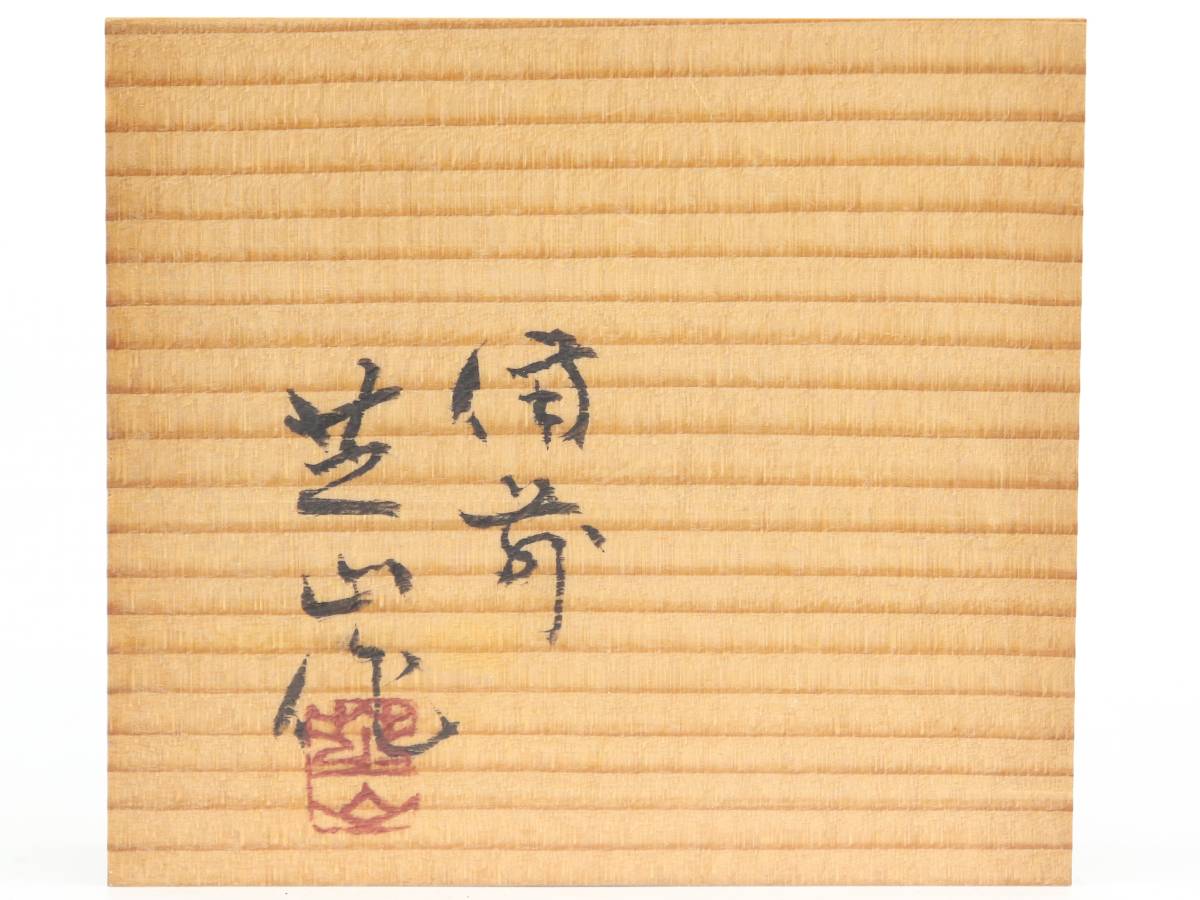 備前
芝山作